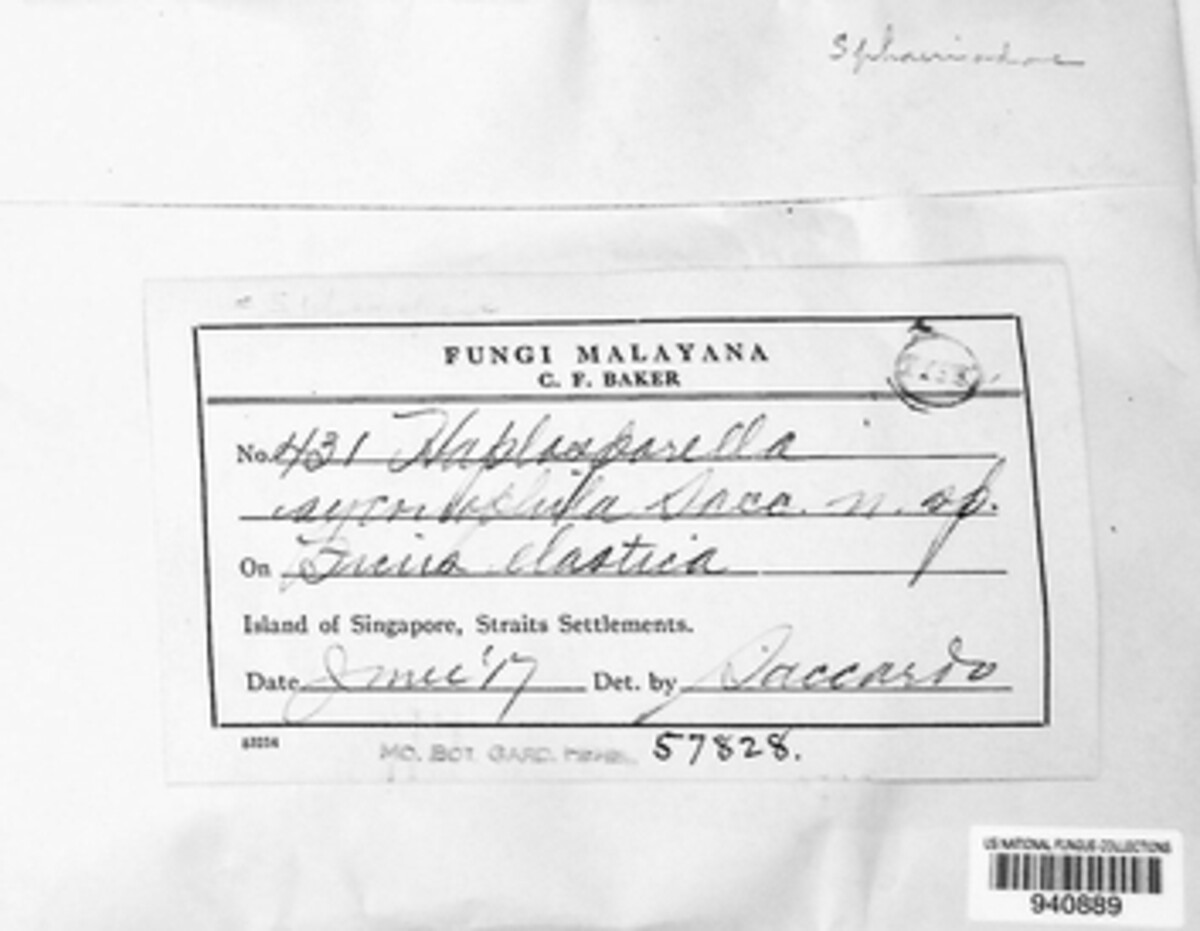 FUNGI MALAYANA
C. F. BAKER
No. 431 Haplosporella
Sacc. n. sp.
On Ficus elastica
Island of Singapore, Straits Settlements.
Date June '17 Det. by Saccardo
MO. BOT. GARD. HERB. 57828.
US NATIONAL FUNGUS COLLECTIONS
940889